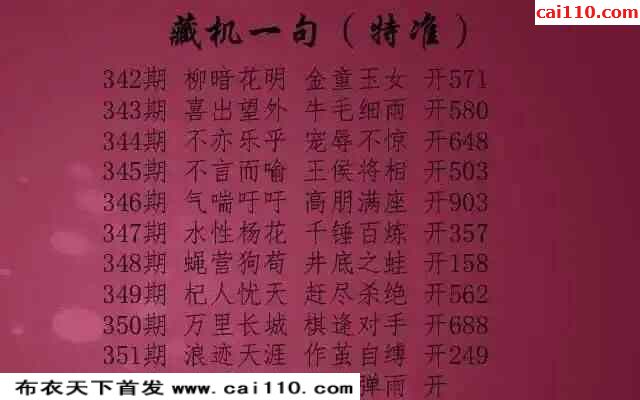 cai110.com
藏机一句（特准）
342期 柳暗花明 金童玉女 开571
343期 喜出望外 牛毛细雨 开580
344期 不亦乐乎 宠辱不惊 开648
345期 不言而喻 王侯将相 开503
346期 气喘吁吁 高朋满座 开903
347期 水性杨花 千锤百炼 开357
348期 蝇营狗苟 井底之蛙 开158
349期 杞人忧天 赶尽杀绝 开562
350期 万里长城 棋逢对手 开688
351期 浪迹天涯 作茧自缚 开249
弹雨 开
布衣天下首发 www.cai110.com